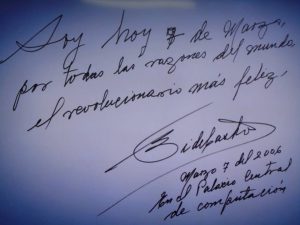 Soy hoy 7 de Marzo,
por todas las razones del mundo
el revolucionario más feliz,
Marzo 7 del 2006
En el Palacio Central
de computación